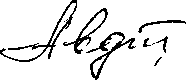 Авдт